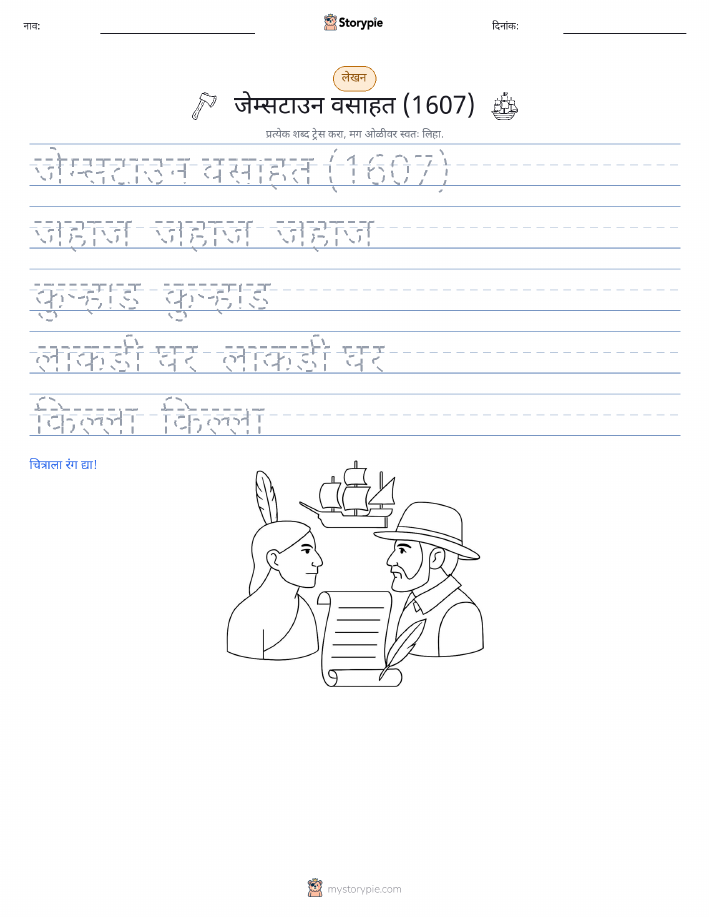 नाव:
Storypie
दिनांक:
लेखन
जेम्सटाउन वसाहत (1607)
प्रत्येक शब्द ट्रेस करा, मग ओळीवर स्वतः लिहा.
जेम्सटाउन वसाहत (1607)
जहाज जहाज जहाज
कुऱ्हाड कुऱ्हाड
लाकडी घर लाकडी घर
किल्ला किल्ला
चित्राला रंग द्या!
mystorypie.com